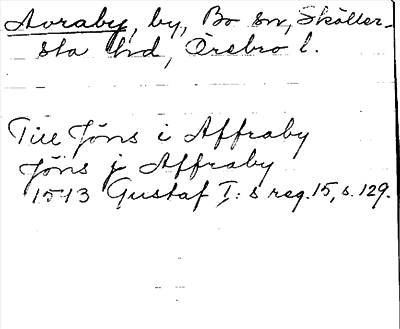 Avraby, by, Bo sn, Sköller-
sta hd, Örebro l.
Till Jöns i Affraby
Jöns j Affraby
1543 Gustaf I:s reg. 15, s. 129.